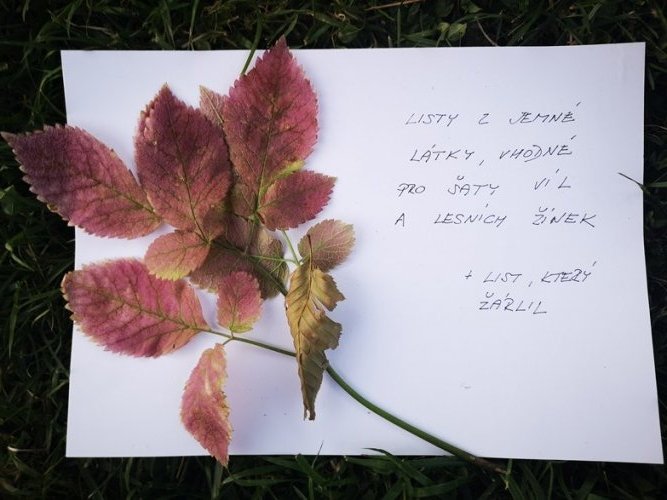 LISTY Z JEMNÉ
LÁTKY, VHODNÉ
PRO ŠATY VÍL
A LESNÍCH ŽÍNEK
+ LIST, KTERÝ
ŽÁRLIL